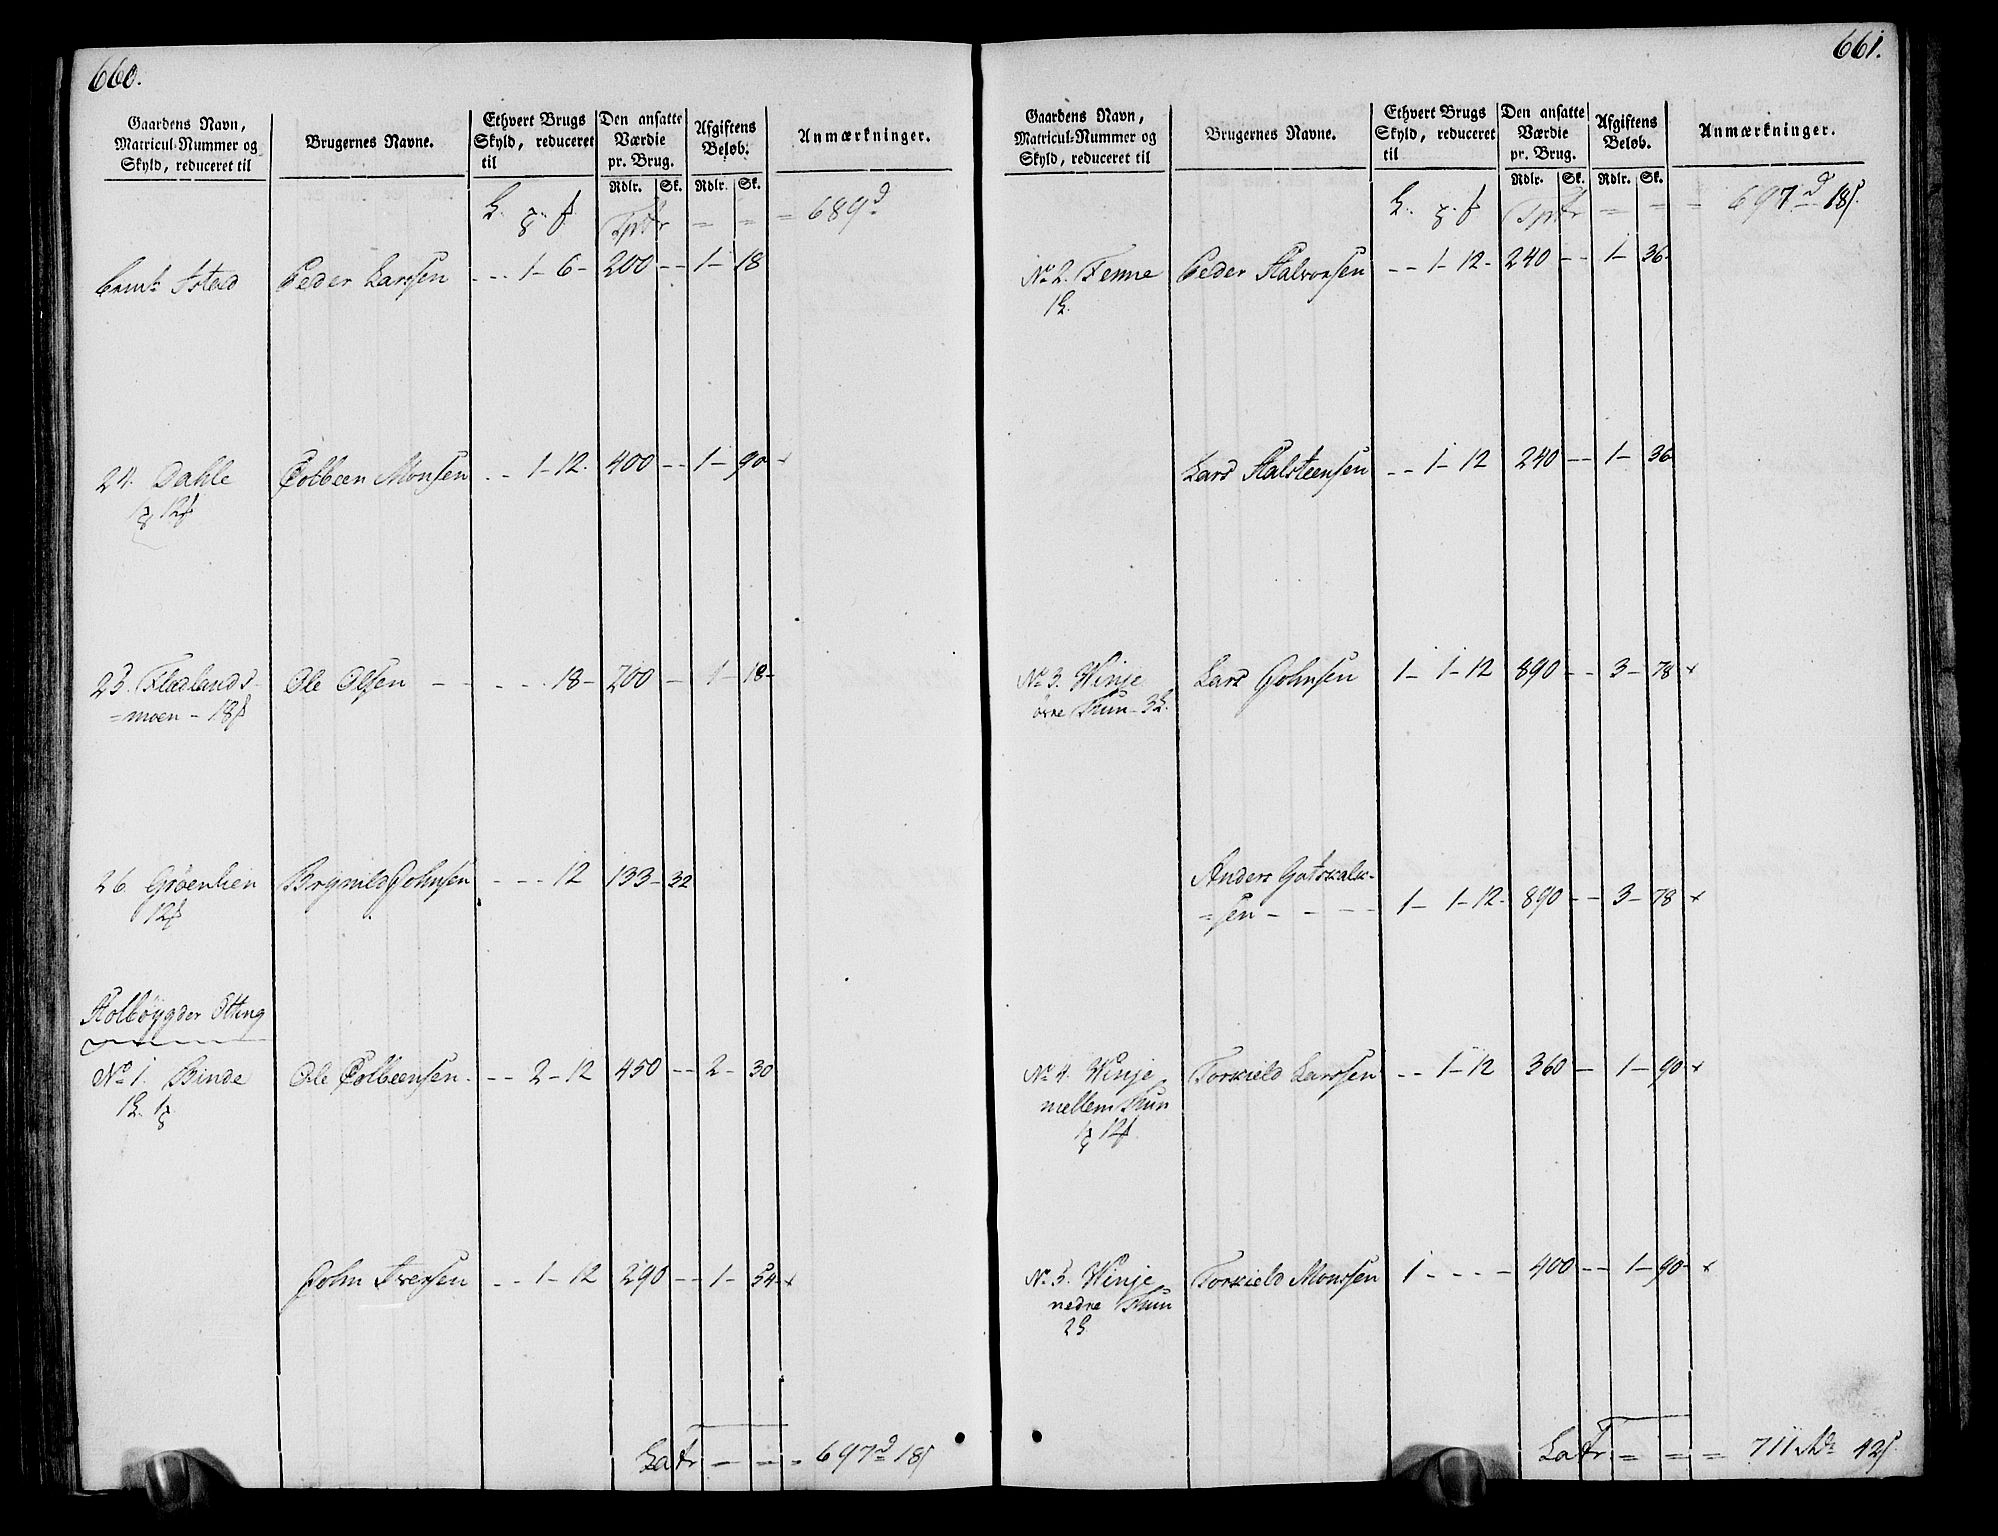 660.
Gaardens Navn, Matricul-Nummer og Skyld, reduceret til | Brugernes Navne. | Ethvert Brugs Skyld, reduceret til | Den ansatte Værdie pr. Brug. | Afgiftens Beløb. | Anmærkninger.
Rdlr. | Sk. | Rdlr. | Sk.
Tptr = = = 689 d
Peder Larssen - - - 1 - 6 - 200 - - 1 - 18
24. Dahle Colbeen Monsen - - 1 - 12. 400 - - 1 - 90 - x
12 f
25. Fladlands- Ole Olsen - - - - - 18 - 200 - 1 - 18 -
= moen - 18 f
26. Grøenlien Brynild Johnsen - - - 12 133 - 32
12 f
Holbøygder Otting
No 1. Binde Ole Colbeensen - - - 2 - 12 450 - - 2 - 30
John Iversen - - 1 - 12 290 - - 1 - 54 - x
Latr - - = 697 d 18 f
661.
Gaardens Navn, Matricul-Nummer og Skyld, reduceret til | Brugernes Navne. | Ethvert Brugs Skyld, reduceret til | Den ansatte Værdie pr. Brug. | Afgiftens Beløb. | Anmærkninger.
Rdlr. | Sk. | Rdlr. | Sk.
Tptr = = = 697 d 18 f
No 2. Fenne Peder Halvorsen - - 1 - 12 - 240 - - 1 - 36 -
Lars Halsteensen - - 1 - 12 240 - - 1 - 36
No 3. Winje Lars Johnsen 1 - 1 - 12 890 - - 3 - 78 x
øvre Thun
Anders Gotskalk-
= sen - - - - 1 - 1 - 12 - 890 - - 3 - 78 x
No 4. Winje Torkield Larssen - - 1 - 12 360 - 1 - 90 - x
mellem Thun
12 f
No 5. Winje Torkield Monssen 1 - - - - 400 - - 1 - 90 - x
nedre Thun
Latr = = = 711 Rd 42 f